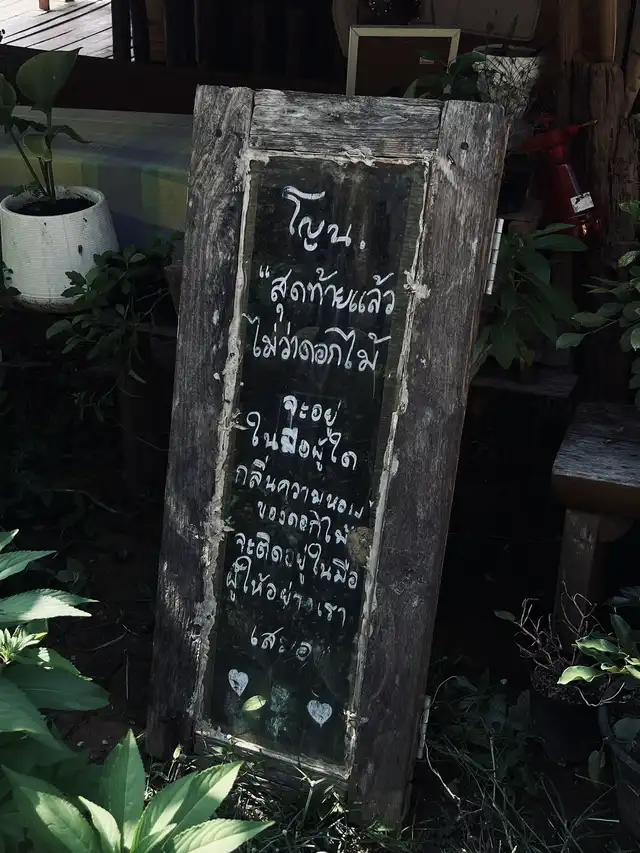 โญน.
"สุดท้ายแล้ว
ไม่ว่าดอกไม้
จะอยู่
ในมือผู้ใด
กลิ่นความหอม
ของดอกไม้
จะติดอยู่ในมือ
ผู้ให้อย่างเรา
เสมอ